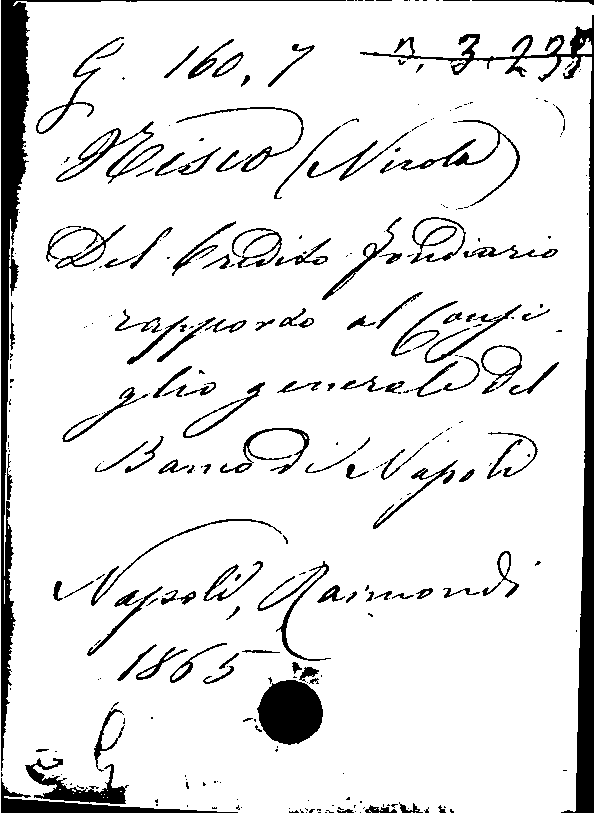 G. 160, 7 3. 3. 238
Nisco (Nicola)
Del Credito fondiario
rapporto al Consi
glio generale del
Banco di Napoli
Napoli, Raimondi
1865
G